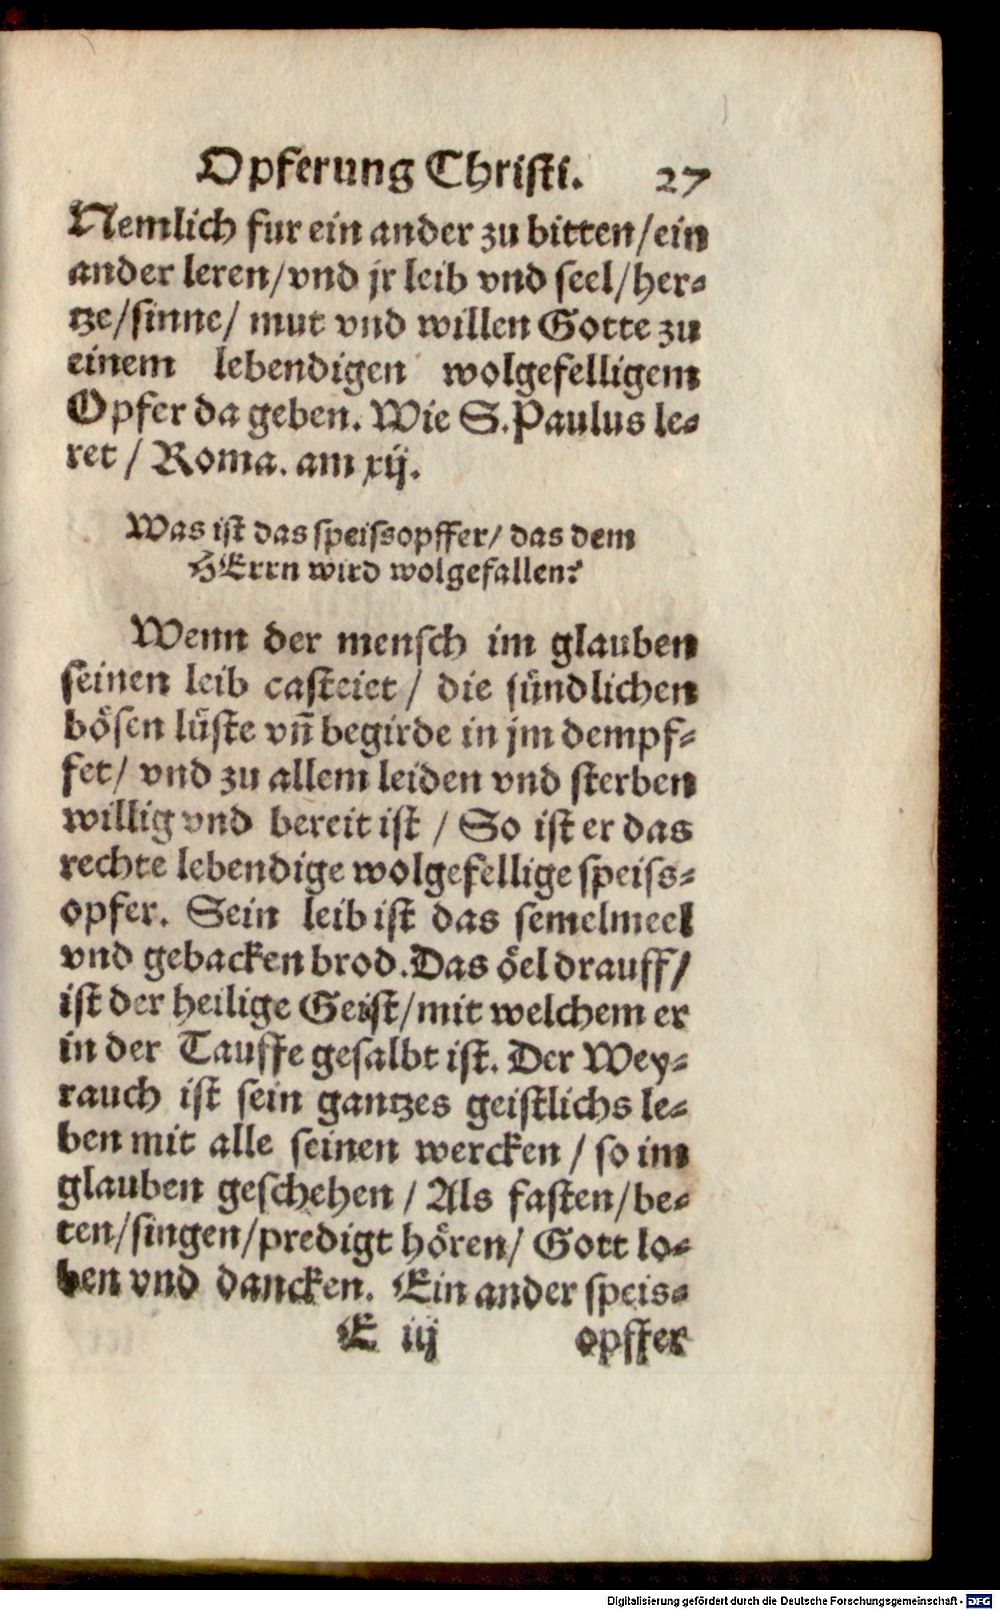 Opferung Christi. 27
Nemlich fur ein ander zu bitten/ein
ander leren/vnd jr leib vnd seel/her⸗
tze/sinne/ mut vnd willen Gotte zu
einem lebendigen wolgefelligem
Opfer da geben. Wie S. Paulus le⸗
ret / Roma. am xij.
Was ist das speissopffer/ das dem
HErrn wird wolgefallen?
Wenn der mensch im glauben
seinen leib casteiet / die sündlichen
bösen lüste vñ begirde in jm dempf⸗
fet/ vnd zu allem leiden vnd sterben
willig vnd bereit ist / So ist er das
rechte lebendige wolgefellige speiss⸗
opfer. Sein leib ist das semelmeel
vnd gebacken brod. Das öel drauff/
ist der heilige Geist/mit welchem er
in der Tauffe gesalbt ist. Der Wey⸗
rauch ist sein gantzes geistlichs le⸗
ben mit alle seinen wercken / so im
glauben geschehen / Als fasten/be⸗
ten/singen/predigt hören/ Gott lo⸗
ben vnd dancken. Ein ander speis⸗
E iij opffer
Digitalisierung gefördert durch die Deutsche Forschungsgemeinschaft - DFG